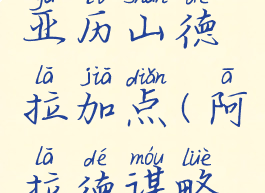 yà lì shān dé
亚历山德
lā jiā diǎn ā
拉加点(阿
lā dé móu lüè
拉德谋略